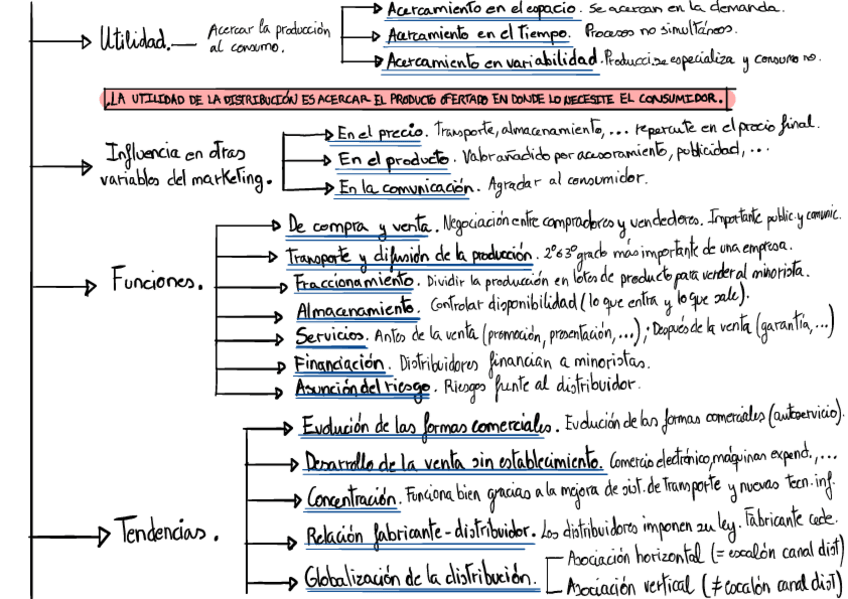 Acercamiento en el espacio. Se acercan en la demanda.
Utilidad. Acercar la producción al consumo.
Acercamiento en el Tiempo. Procesos no simultáneos.
Acercamiento en variabilidad. Producc. se especializa y consumo no.
LA UTILIDAD DE LA DISTRIBUCIÓN ES ACERCAR EL PRODUCTO OFERTADO EN DONDE LO NECESITE EL CONSUMIDOR.
Influencia en otras
variables del marketing.
En el precio. Transporte, almacenamiento, ... repercute en el precio final.
En el producto. Valor añadido por asesoramiento, publicidad, ...
En la comunicación. Agradar al consumidor.
Funciones.
De compra y venta. Negociación entre compradores y vendedores. Importante public. y comunic.
Transporte y difusión de la producción. 2º ó 3º grado más importante de una empresa.
Fraccionamiento. Dividir la producción en lotes de producto para vender al minorista.
Almacenamiento. Controlar disponibilidad (lo que entra y lo que sale).
Servicios. Antes de la venta (promoción, presentación, ...); Después de la venta (garantía, ...)
Financiación. Distribuidores financian a minoristas.
Asunción del riesgo. Riesgos frente al distribuidor.
Tendencias.
Evolución de las formas comerciales. Evolución de las formas comerciales (autoservicio).
Desarrollo de la venta sin establecimiento. Comercio electrónico, máquinas expend., ...
Concentración. Funciona bien gracias a la mejora de sist. de Transporte y nuevas tecn. inf.
Relación fabricante-distribuidor. Los distribuidores imponen su ley. Fabricante cede.
Globalización de la distribución.
Asociación horizontal (= escalón canal dist)
Asociación vertical (≠ escalón canal dist)